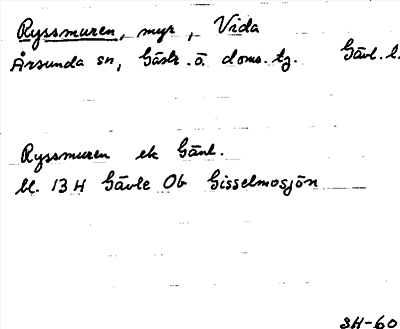 Ryssmuren, myr, Vida
Årsunda sn, Gästr. ö. doms. tg. Gävl. l.
Ryssmuren ek Gävl.
bl. 13 H Gävle Ob Gisselmosjön
SH-60